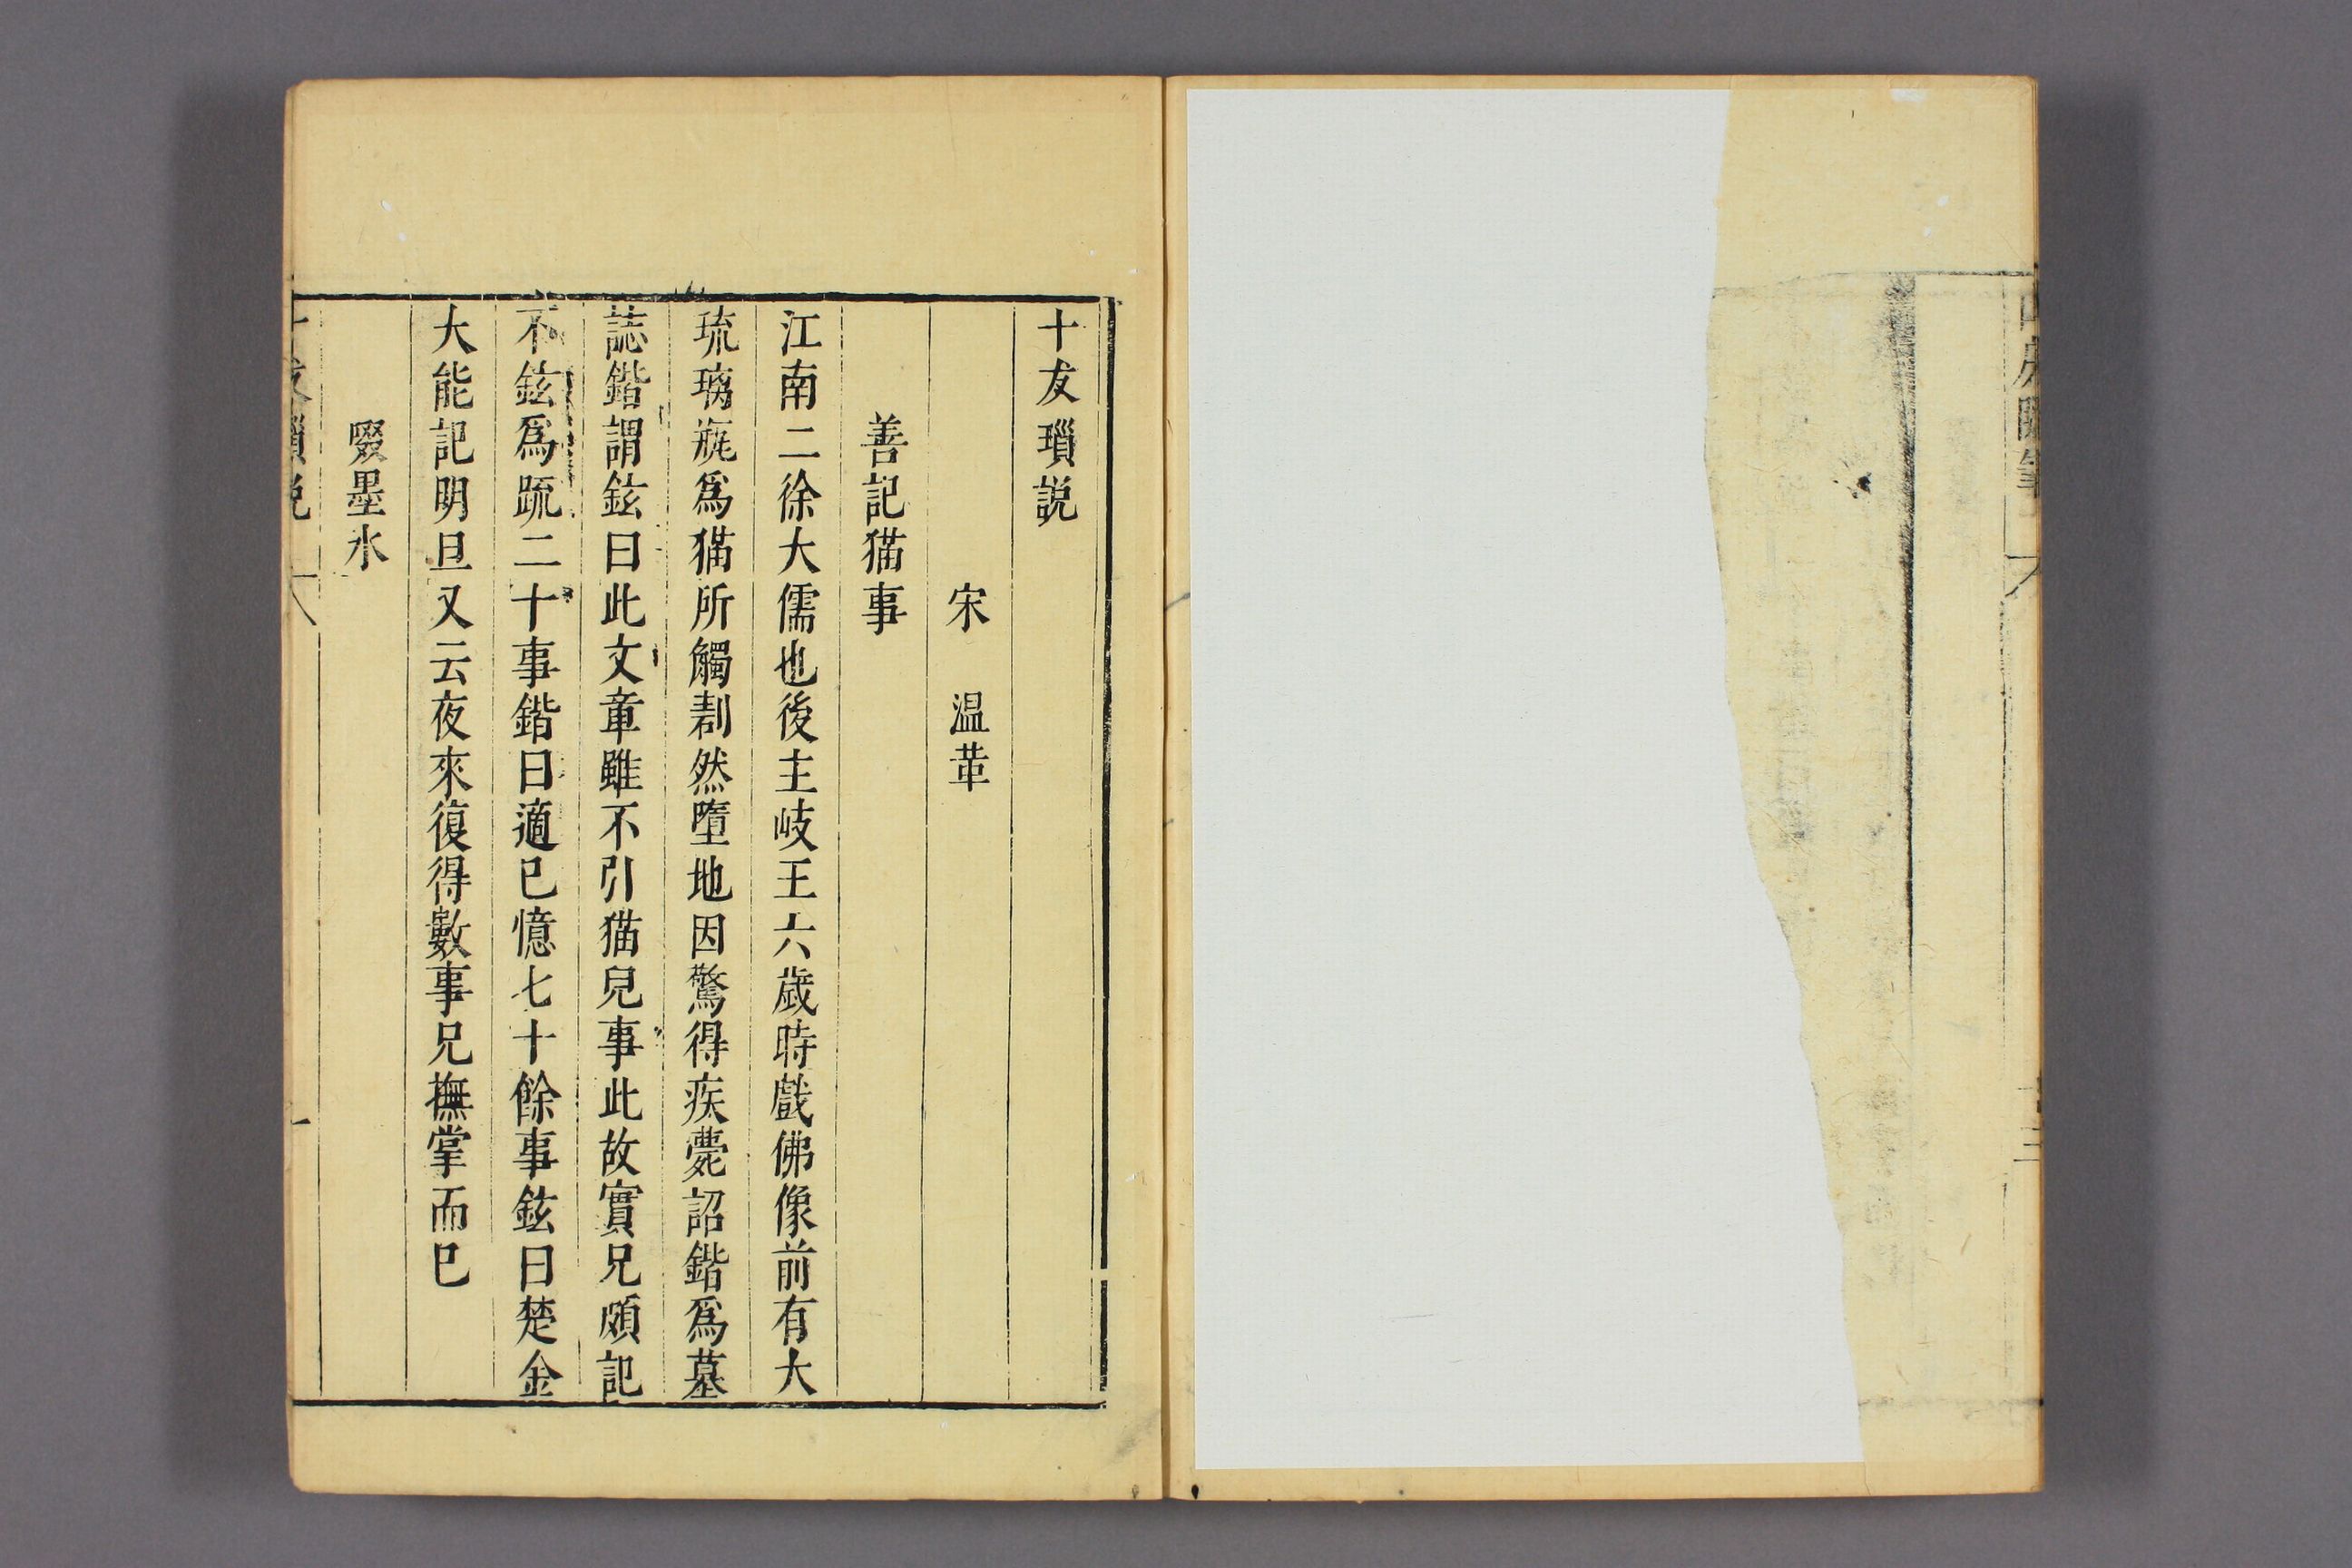 十友瑣説
宋　温革
善記猫事
江南二徐大儒也後主岐王六歲時戲佛像前有大
琉璃瓶爲猫所觸劃然墮地因驚得疾薨詔鍇爲墓
誌鍇謂鉉曰此文章雖不引猫兒事此故實兄頗記
不鉉爲疏二十事鍇曰適已憶七十餘事鉉曰楚金
大能記明旦又云夜來復得數事兄撫掌而已
啜墨水